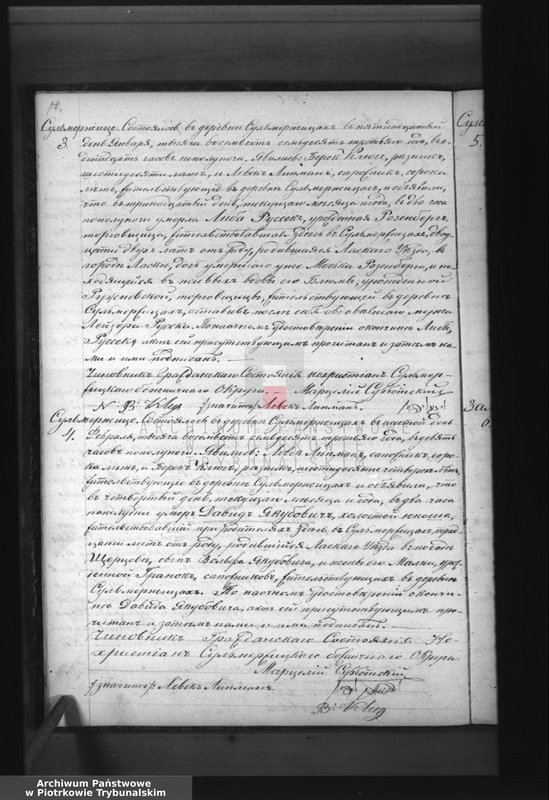 17.
Сульмержице. Состоялось въ деревни Сульмержицахъ въ пятнадцатый
3. день Января, тысяча восемьсотъ семьдесятъ третьяго года, въ о
часовъ полудня. Явились: Берекъ Клюсъ, рѣзникъ,
шестидесяти лѣтъ, и Левекъ Липманъ, сапожникъ, сорока
лѣтъ, жительствующіе въ деревни Сульмержицахъ, и объявили,
что въ тринадцатый день, текущаго мѣсяца и года, въ два часа
пополуночи умерла Либа Руссекъ, урожденная Розенберъ,
торговщица, жительствовавшая здѣсь въ Сульмержицахъ, двад
цати двухъ лѣтъ отъ роду, родившаяся Ласкаго Уѣзда, въ
городѣ Ласкѣ, дочь умершаго уже Мошка Розенберга, и на
ходящейся въ живыхъ вдовы его Блюмы, урожденной
торговщицы, жительствующей въ деревни
Сульмержицахъ, оставивъ послѣ себя овдовѣвшаго мужа
Лейзера Русска. По настоящемъ удостовѣреніи о кончинѣ Либы
Руссекъ, актъ сей присутствующимъ прочитанъ и затѣмъ на
ми и ими подписанъ.
Чиновникъ Гражданскаго Состоянія нехристіанъ Сульмер-
жицкаго Округа Марцелій
B: Klus /значитъ/: Левекъ Липманъ.
Сульмержице. Состоялось въ деревни Сульмержицахъ въ шестой день
4. Февраля, тысяча восемьсотъ семьдесятъ третьяго года, въ девять
часовъ пополуночи. Явились: Левекъ Липманъ, сапожникъ, соро
ка лѣтъ, и Берекъ Клюсъ, рѣзникъ, шестидесяти четырехъ лѣтъ,
жительствующіе въ деревни Сульмержицахъ и объявили, что
въ четвертый день, текущаго мѣсяца и года, въ два часа
пополудни умеръ Давидъ Якубовичъ, холостой юноша,
жительствовавшій при родителяхъ здѣсь въ Сульмержицахъ, трид
цати лѣтъ отъ роду, родившійся Ласкаго Уѣзда въ посадѣ
Щерцовѣ, сынъ Вольфа Якубовича, и жены его Малки, уро
жденной Гранокъ, сапожниковъ, жительствующихъ въ деревни
Сульмержицахъ. По настоящемъ удостовѣреніи о кончи
нѣ Давида Якубовича, актъ сей присутствующимъ про
читанъ и затѣмъ нами и ими подписанъ.
Чиновникъ Гражданскаго Состоянія Не-
христіанъ Сульмержицкаго Округа
Марцелій
/значитъ/: Левекъ Липманъ.
B: Klus
5.
Archiwum Państwowe
w Piotrkowie Trybunalskim